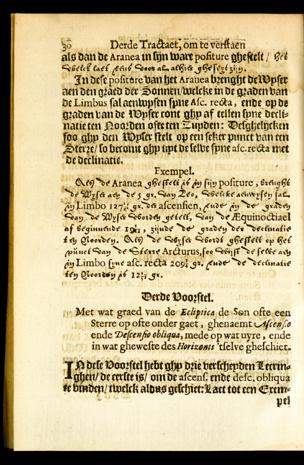 30 Derde Tractaet, om te verstaen
als dan de Aranea in sijn ware positure ghestelt / het
welck laet eens voor al altijt ghesegt zijn.
In dese positure van het Aranea brenght de Wyser
aen den graed der Sonnen / welcke in de graden van
de Limbus sal aenwysen syne Asc. recta, ende op de
graden van de Wyser cont ghy af tellen syne decli-
natie ten Noorden ofte ten Zuyden: Desghelycken
soo ghy den Wyser stelt op een seker punct van een
Sterre / so becomt ghy tipt de selve syne asc. recta met
de declinatie.
Exempel.
de Aranea ghestelt in sijn positure, brenght
de Wyser aen de gr. van Leo,
Limbo gr. der ascensien, ende in de graden
van de Wyser van de Æquinoctiael
af beginnende graden der declinatie
ten Noorden. de Wyser wordt ghestelt op het
punct van de Sterre Arcturus, soo wijst de selve aen
Limbo syne asc. recta gr. ende de declinatie
ten Noorden gr.
Derde Voorstel.
Met wat graed van de Ecliptica de Son ofte een
Sterre op ofte onder gaet, ghenaemt Ascensio
ende Descensio obliqua, mede op wat uyre, ende
in wat gheweste des Horizonts 'tselve gheschiet.
IN dese Voorstel hebt ghy drie verscheyden Leerin-
ghen / de eerste is / om de ascens. ende desc. obliqua
te vinden / twelck aldus geschiet: Laet tot een Exem-
pel